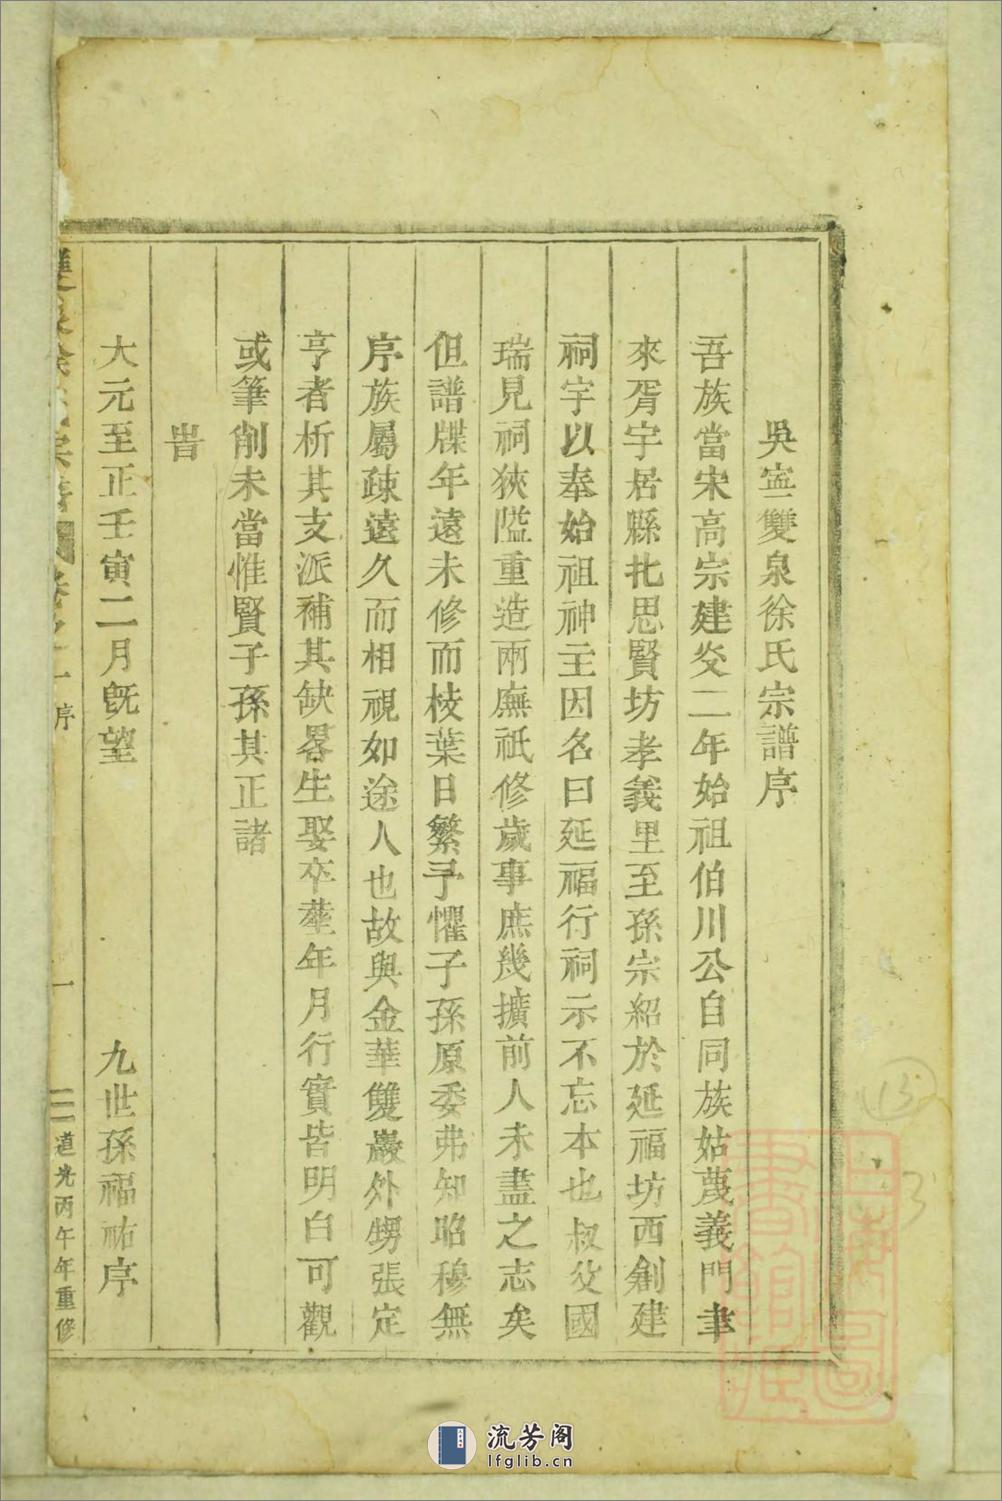 吳寕雙泉徐氏宗譜序
吾族當宋高宗建炎二年始祖伯川公自同族姑蔑義門聿
來胥宇居縣北思賢坊孝義里至孫宗紹於延福坊西創建
祠宇以奉始祖神主因名曰延福行祠示不忘本也叔父國
瑞見祠狹隘重造兩廡祇修歲事庶幾擴前人未盡之志矣
但譜牒年遠未修而枝葉日繁予懼子孫原委弗知昭穆無
序族屬疎遠久而相視如途人也故與金華雙巖外甥張定
亨者析其支派補其缺畧生娶卒塟年月行實皆明白可觀
或筆削未當惟賢子孫其正諸
旹
大元至正壬寅二月旣望 九世孫福祐序
雙泉徐氏宗譜 卷之一 序 一 道光丙午年重修
上海圖書館藏
13
流芳阁
lfglib.cn